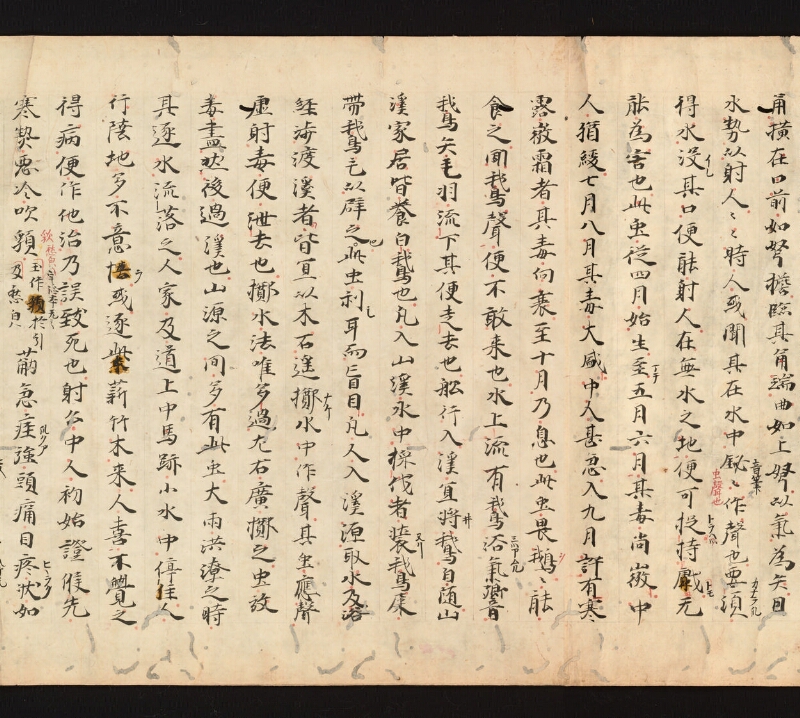 角横在口前如弩檐臨其角端曲如上弩以氣為矢因
水勢以射人々時人或聞其在水中鉍々作聲也要須
得水没其口便能射人在無水之地便可捉持戲元
能為害也此虫從四月始生至五月六月其毒尚微中
人猶緩七月八月其毒大盛中人甚忽入九月許有寒
露微霜者其毒向衰至十月乃息也此虫畏鵝々能
食之聞鵝聲便不敢来也水上流有鵝浴氣響
鵝矢毛羽流下其便走去也舩行入溪宜將鵝自随山
溪家居皆養白鵝也凡入山溪水中採伐者裝鵝屎
帶鵝毛以辟之此虫利耳而盲目凡人入溪源取水及浴
経渉渡溪者皆宜以木石遥擲水中作聲其虫應聲
虚射毒便泄去也擲水法唯多過九石廣擲之虫放
毒盡然後過溪也山源之間多有此虫大雨洪潦之時
其逐水流落之人家及道上中馬跡小水中停住人
行陸地多不意 或逐此薪竹木来人喜不覺之
得病便作他治乃誤致死也射公中人初始證候先
寒熱惡冷吹 急痓強頭痛目疼状如
音筆
虫聲也